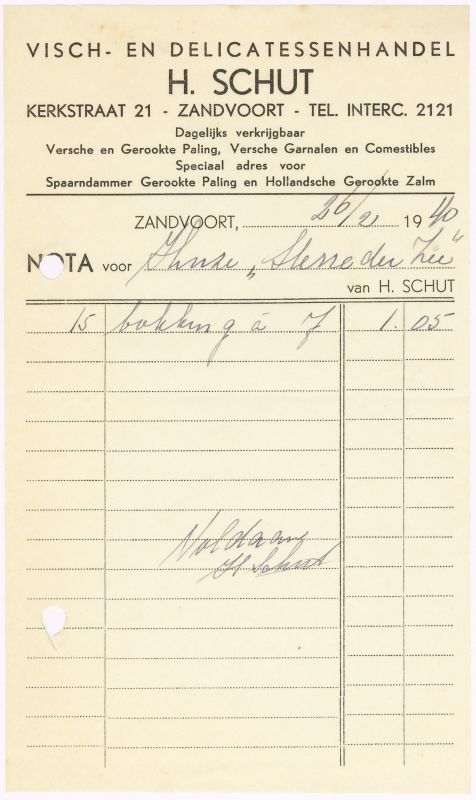 VISCH- EN DELICATESSENHANDEL
H. SCHUT
KERKSTRAAT 21 - ZANDVOORT - TEL. INTERC. 2121
Dagelijks verkrijgbaar
Versche en Gerookte Paling, Versche Garnalen en Comestibles
Speciaal adres voor
Spaarndammer Gerookte Paling en Hollandsche Gerookte Zalm
ZANDVOORT, 26/2 1940
NOTA voor Huize „Sterre der Zee"
van H. SCHUT
15 bokking à 7 1.05
Voldaan
H Schut